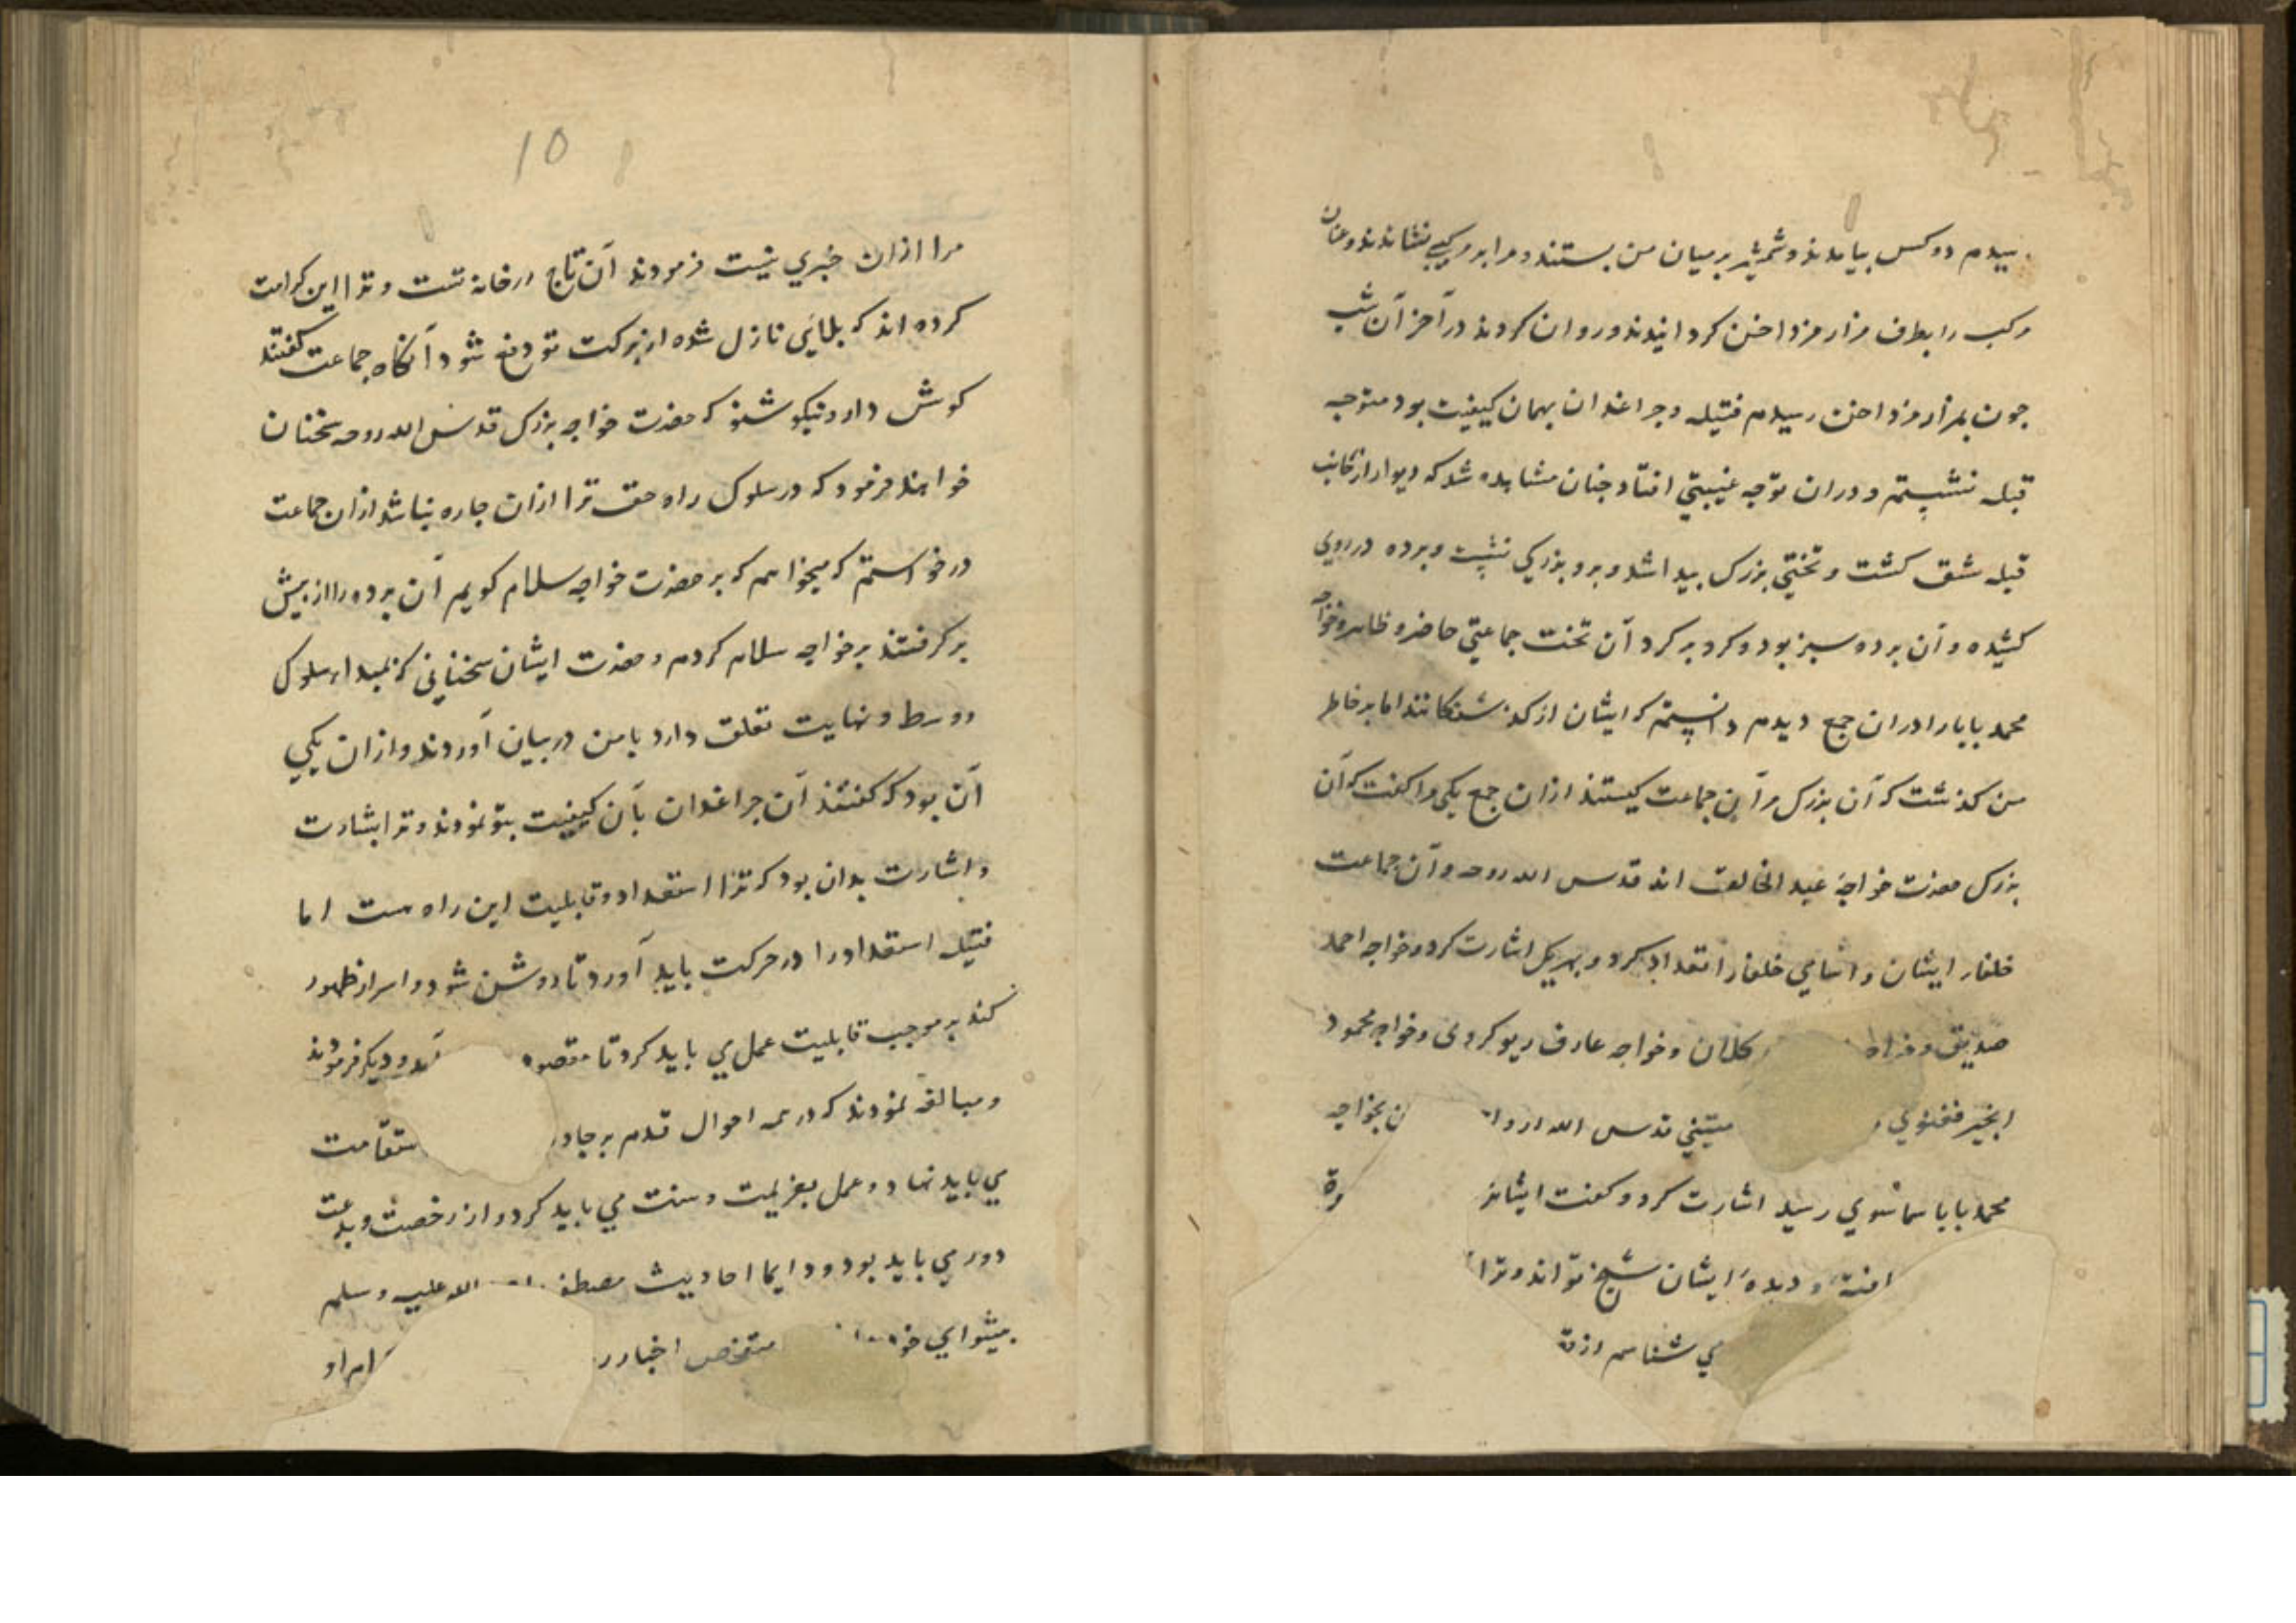 رسیدم دو کس بیامدند و شمشیر بر میان من بستند و مرا بر مرکبی نشاندند و عنان
مرکب را بطرف مزار مزداخن کردانیدند و روان کردند در آخر آن شب
جون بمزار مزداخن رسیدم فتیله و جراغدان بهمان کیفیت بود متوجه
قبله نشستم و دران توجه غیبتی افتاد جنان مشاهده شد که دیوار از جانب
قبله شق کشت و تختی بزرک بیدا شد و برو بزرکی نشسته و برده در روی
کشیده و آن برده سبز بود و کرد بر کرد آن تخت جماعتی حاضر و ظاهر و خواجه
محمد بابا را دران جمع دیدم دانستم که ایشان از کذشتکانند اما بر خاطر
من کذشت که آن بزرک و این جماعت کیستند ازان جمع یکی مرا کفت که آن
بزرک حضرت خواجه عبد الخالق اند قدس الله روحه و آن جماعت
خلفاء ایشان و اسامی خلفا را تعداد کرد و بهریک اشارت کرد و خواجه احمد
صدیق و خواجه کلان و خواجه عارف ریوکروی و خواجه محمود
ابخیر فغنوی و میتنی قدس الله ارواح ن بخواجه
محمد بابا سماسوی رسید اشارت کرد و کفت ایشانرا
یافتهٔ و دیدهٔ ایشان شیخ تواند و ترا
می شناسم از
10
مرا ازان خبری نیست فرمودند آن تاج در خانه تست و ترا این کرامت
کرده اند که بلایی نازل شده از برکت تو دفع شود آنکاه جماعت کفتند
کوش دار و نیکو شنو که حضرت خواجه بزرک قدس الله روحه سخنان
خواهند فرمود که در سلوک راه حق ترا ازان جاره نباشد ازان جماعت
درخواستم که میخواهم که بر حضرت خواجه سلام کویم آن برده را از بیش
برکرفتند بر خواجه سلام کردم و حضرت ایشان سخنانی که بمبداء سلوک
و وسط و نهایت تعلق دارد با من در بیان آوردند و ازان یکی
آن بود که کفتند آن جراغدان بآن کیفیت بتو نمودند و ترا بشارت
و اشارت بدان بود که ترا استعداد و قابلیت این راه هست اما
فتیله استعداد را در حرکت باید آورد تا روشن شود و اسرار ظهور
کند بر موجب قابلیت عمل می باید کرد تا مقصود شود و دیکر فرمودند
و مبالغه نمودند که در همه احوال قدم بر جاده ستقامت
می باید نهاد و عمل بعزیمت و سنت می باید کرد و از رخصت و بدعت
دور می باید بود و دایما احادیث مصطفی الله علیه و سلم
بیشوای خود متفحص اخبار